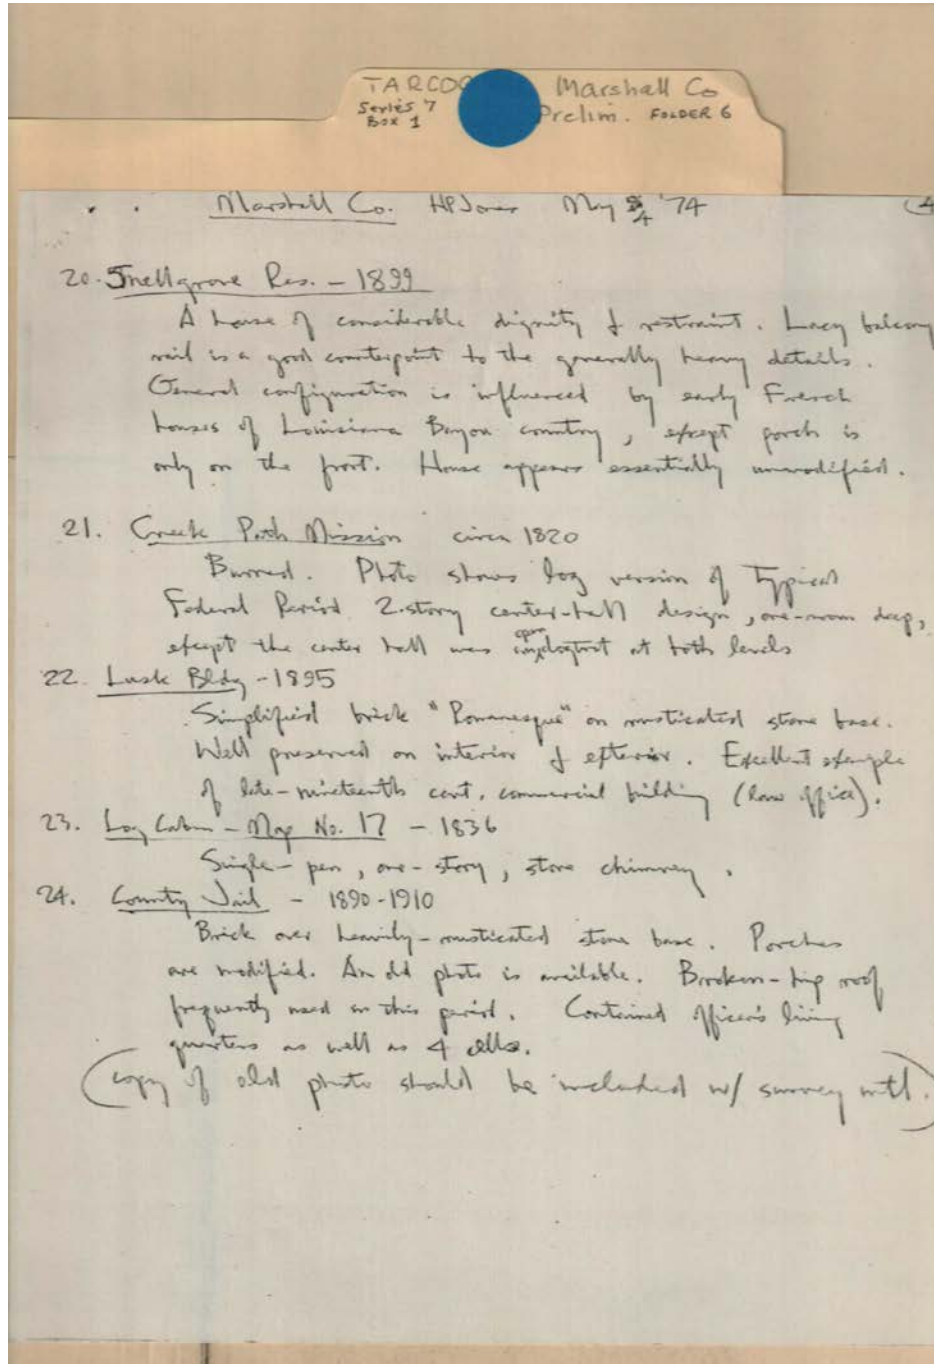 TARCOG Marshall Co
Series 7 Prelim. FOLDER 6
Box 1
Marshall Co. HPJones May 4 '74 (4
20. Snellgrove Res. - 1899
A house of considerable dignity & restraint. Lacy balcony
rail is a good counterpoint to the generally heavy details.
General configuration is influenced by early French
houses of Louisiana Bayou country, except porch is
only on the front. House appears essentially unmodified.
21. Creek Path Mission circa 1820
Burned. Photo shows log version of Typical
Federal Period 2-story center-hall design, one-room deep,
except the center hall was open dogtrot at both levels
22. Lusk Bldg - 1895
Simplified brick "Romanesque" on rusticated stone base.
Well preserved on interior & exterior. Excellent example
of late-nineteenth cent. commercial building (law office).
23. Log Cabin - Map No. 17 - 1836
Single-pen, one-story, stone chimney.
24. County Jail - 1890-1910
Brick over heavily-rusticated stone base. Porches
are modified. An old photo is available. Broken-hip roof
frequently used in this period. Contained officer's living
quarters as well as 4 cells.
(copy of old photo should be included w/ survey mtl.)